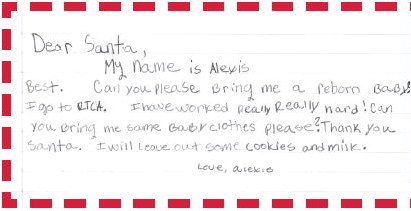 Dear Santa,
My name is Alexis
Best. Can you please Bring me a reborn BaBy!
I go to RTCA. I have worked Really Really hard! Can
you Bring me some BaBy clothes please? Thank you
Santa. I will leave out some cookies and milk.
Love, alexis